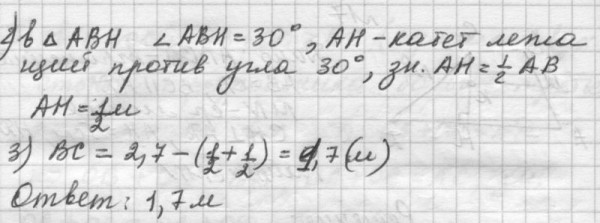 2) в △ ABH ∠ ABH = 30°, AH - катет лежа
щий против угла 30°, зн. AH = 1/2 AB
AH = 1/2 м
3) BC = 2,7 - (1/2 + 1/2) = 1,7 (м)
Ответ: 1,7 м